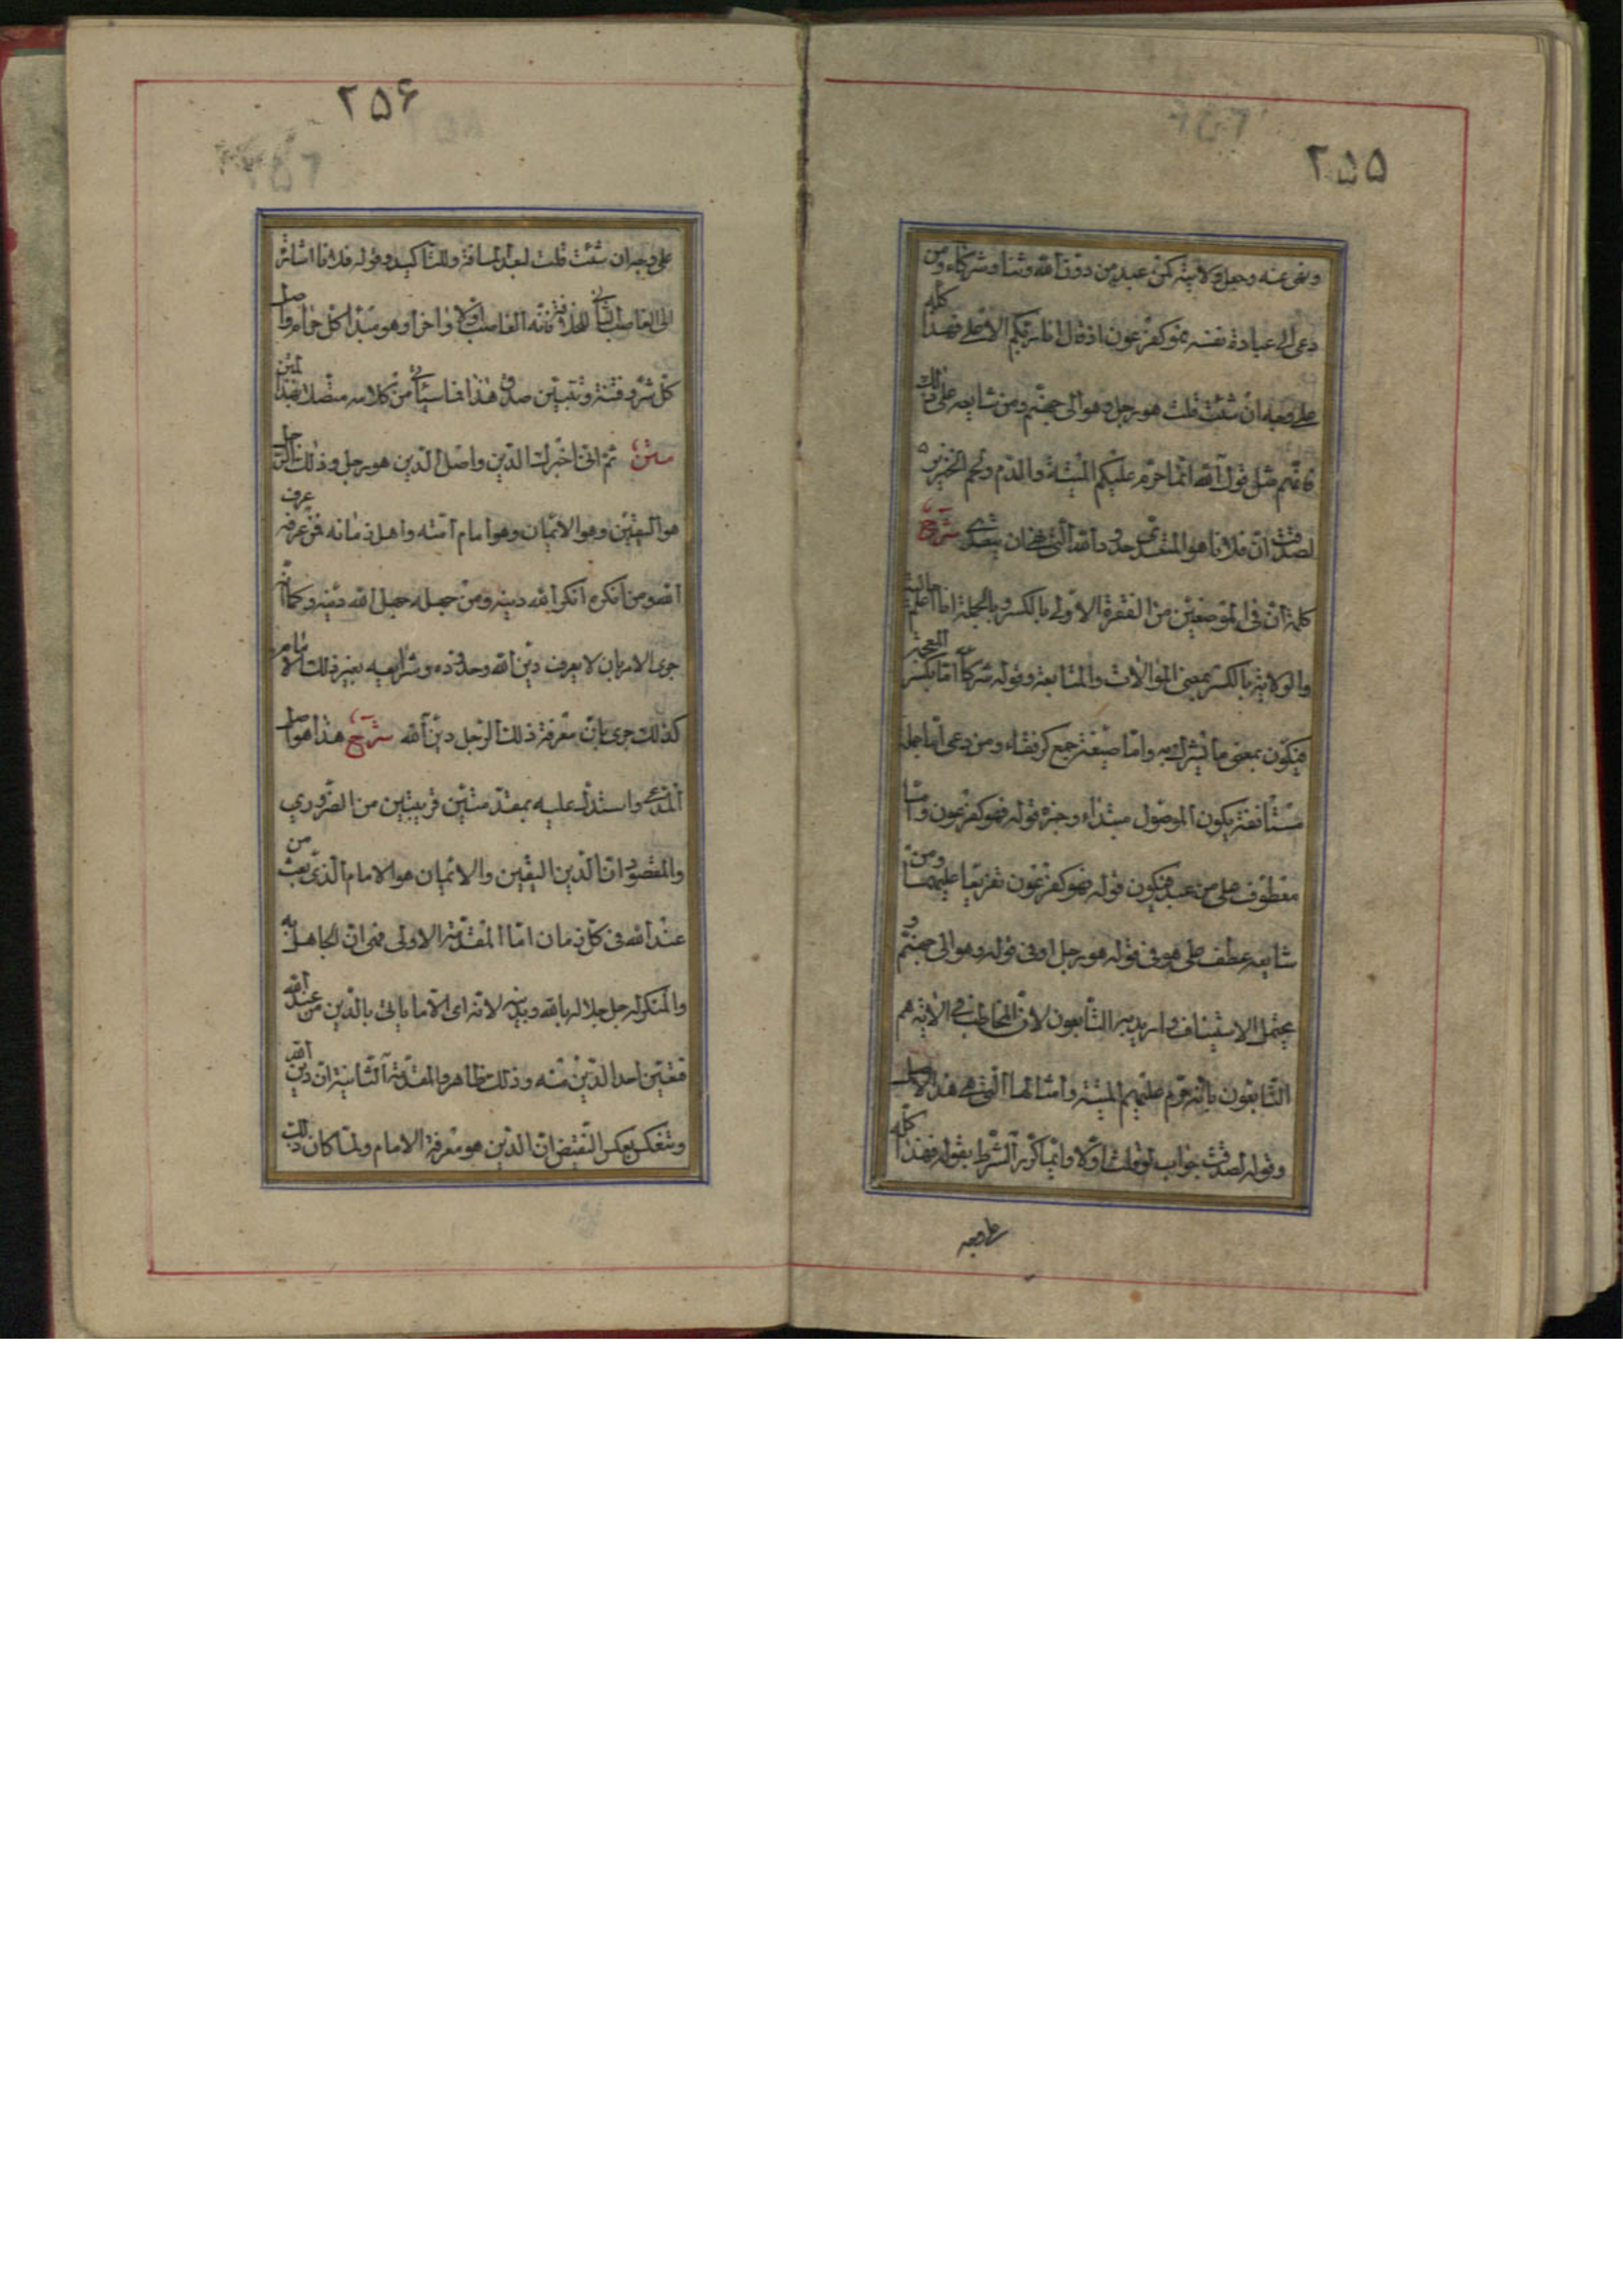 ۲۵۵
ونهى عنه وجعل ولايته كمن عبد من دون الله وثنا وشركاء ومن
دعى الى عبادة نفسه فهو كفرعون اذ قال انا ربكم الاعلى فهذا كله
على وجه ان شئت قلت هو رجل وهو الى جهنم ومن شايعه على ذلك
فافهم مثل قول الله انما حرم عليكم الميتة والدم ولحم الخنزير
لصدقت ان فلانا هو المتعدى حدود الله التى نهى ان يتعدى شرح
كلمة ان فى الموضعين من الفقرة الاولى بالكسر وبالجملة حالية
والولاية بالكسر بمعنى الموالات والمتابعة وقوله شركا اما بكسر المعجمة
فيكون بمعنى ما يشرك به واما صيغة جمع كرفقاء ومن دعى اما جملة
مستأنفة يكون الموصول مبتداء وخبره قوله فهو كفرعون واما
معطوف على من عبد فيكون قوله فهو كفرعون تفريعا عليهما ومن
شايعه عطف على هو فى قوله هو رجل او فى قوله وهو الى جهنم و
يحتمل الاستيناف واريد به التابعون لان المخاطب فى الآية هم
التابعون بانه حرم عليهم الميتة وامثالها التى هى هذا الاصل
وقوله لصدقت جواب لو قلت اولا وانما كرر الشرط بقوله فهذا كله
على وجه
۲۵۶
على وجه ان شئت قلت لبعد المسافة وللتاكيد وقوله فلانا اشارة
الى الغاصب الثانى للخلافة فانه الغاصب اولا واخرا وهو مبدا كل حرام واصل
كل شر وفتنة وتبيين صدق هذا فما سيأتى من كلامه متصلا بهذا المتن
متن ثم انى اخبرك ان الدين واصل الدين هو رجل وذلك الرجل
هو اليقين وهو الايمان وهو امام امته واهل زمانه فمن عرفه عرف
الله ومن انكره انكر الله دينه ومن جهله جهل الله دينه وكما انه
جرى الامر بان لا يعرف دين الله وحدوده وشرايعه بغير ذلك الامام
كذلك جرى بان معرفة ذلك الرجل دين الله شرح هذا هو اصل
المدعى واستدل عليه بمقدمتين قريبتين من الضرورى
والمقصود ان الدين اليقين والايمان هو الامام الذى بعث من
عند الله فى كل زمان اما المقدمة الاولى فهى ان الجاهل به
والمنكر له رجل جلاله بالله ودينه لانه اى الاما ياتى بالدين من عند الله
فتعين اخذ الدين منه وذلك ظاهر والمقدمة الثانية ان دين الله
وتنعكس بعكس النقيض ان الدين هو معرفة الامام ولما كان ذلك